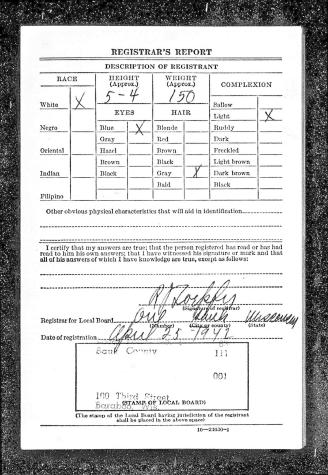 REGISTRAR'S REPORT
DESCRIPTION OF REGISTRANT
RACE HEIGHT (Approx.) WEIGHT (Approx.) COMPLEXION
5-4 150
White X Sallow
Light X
EYES HAIR
Negro Blue X Blonde Ruddy
Gray Red Dark
Oriental Hazel Brown Freckled
Brown Black Light brown
Indian Black Gray X Dark brown
Bald Black
Filipino
Other obvious physical characteristics that will aid in identification
I certify that my answers are true; that the person registered has read or has had
read to him his own answers; that I have witnessed his signature or mark and that
all of his answers of which I have knowledge are true, except as follows:
(Signature of registrar)
Registrar for Local Board One Sauk Wisconsin
(Number) (City or county) (State)
Date of registration April 25-1942
Sauk County
111
001
100 Third Street
Baraboo, Wis.
(STAMP OF LOCAL BOARD)
(The stamp of the Local Board having jurisdiction of the registrant
shall be placed in the above space)